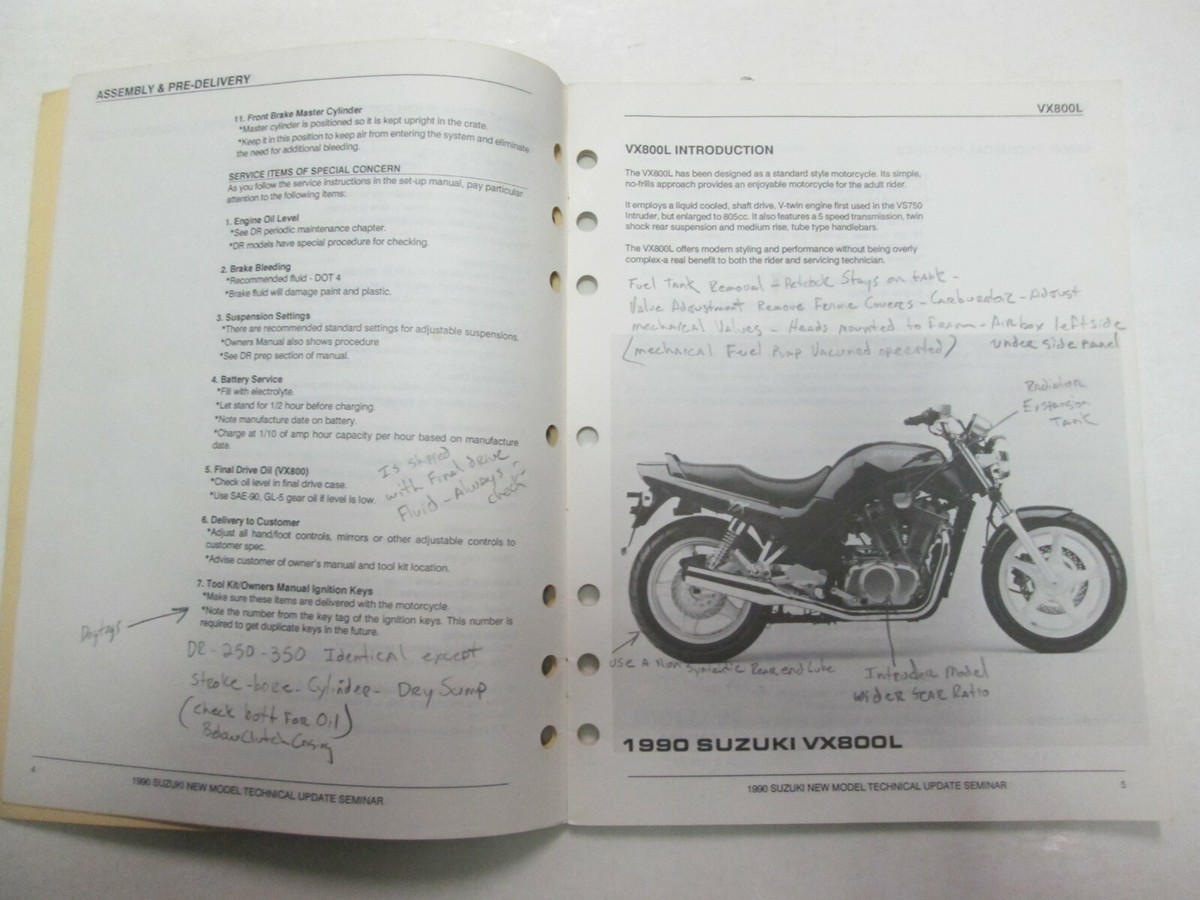 ASSEMBLY & PRE-DELIVERY
11. Front Brake Master Cylinder
*Master cylinder is positioned so it is kept upright in the crate.
*Keep it in this position to keep air from entering the system and eliminate
the need for additional bleeding.
SERVICE ITEMS OF SPECIAL CONCERN
As you follow the service instructions in the set-up manual, pay particular
attention to the following items:
1. Engine Oil Level
*See DR periodic maintenance chapter.
*DR models have special procedure for checking.
2. Brake Bleeding
*Recommended fluid - DOT 4
*Brake fluid will damage paint and plastic.
3. Suspension Settings
*There are recommended standard settings for adjustable suspensions.
*Owners Manual also shows procedure
*See DR prep section of manual.
4. Battery Service
*Fill with electrolyte.
*Let stand for 1/2 hour before charging.
*Note manufacture date on battery.
*Charge at 1/10 of amp hour capacity per hour based on manufacture
date.
5. Final Drive Oil (VX800)
*Check oil level in final drive case.
*Use SAE-90, GL-5 gear oil if level is low.
Is shipped
with Final drive
Fluid - Always
check
6. Delivery to Customer
*Adjust all hand/foot controls, mirrors or other adjustable controls to
customer spec.
*Advise customer of owner's manual and tool kit location.
7. Tool Kit/Owners Manual Ignition Keys
*Make sure these items are delivered with the motorcycle.
*Note the number from the key tag of the ignition keys. This number is
required to get duplicate keys in the future.
DR-250-350 Identical except
Stroke-bore-Cylinder- Dry Sump
(check bott For Oil)
Below Clutch Casing
4
1990 SUZUKI NEW MODEL TECHNICAL UPDATE SEMINAR
VX800L
VX800L INTRODUCTION
The VX800L has been designed as a standard style motorcycle. Its simple,
no-frills approach provides an enjoyable motorcycle for the adult rider.
It employs a liquid cooled, shaft drive, V-twin engine first used in the VS750
Intruder, but enlarged to 805cc. It also features a 5 speed transmission, twin
shock rear suspension and medium rise, tube type handlebars.
The VX800L offers modern styling and performance without being overly
complex-a real benefit to both the rider and servicing technician.
Fuel Tank Removal - Petcock Stays on tank -
Valve Adjustment Remove Covers - Carburetor - Adjust
mechanical Valves - Heads mounted to - Airbox leftside
(mechanical Fuel Pump Vacuum operated) under side panel
Radiator
Expansion
Tank
USE A Non Synthetic Rear end Lube
Intruder Model
Wider GEAR Ratio
1990 SUZUKI VX800L
1990 SUZUKI NEW MODEL TECHNICAL UPDATE SEMINAR
5